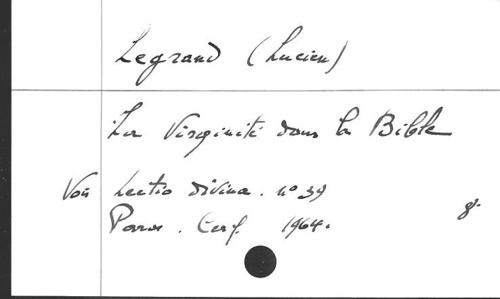 Legrand (Lucien)
La Virginité dans la Bible
Voir Lectio divina. n° 39
Paris. Cerf. 1964.